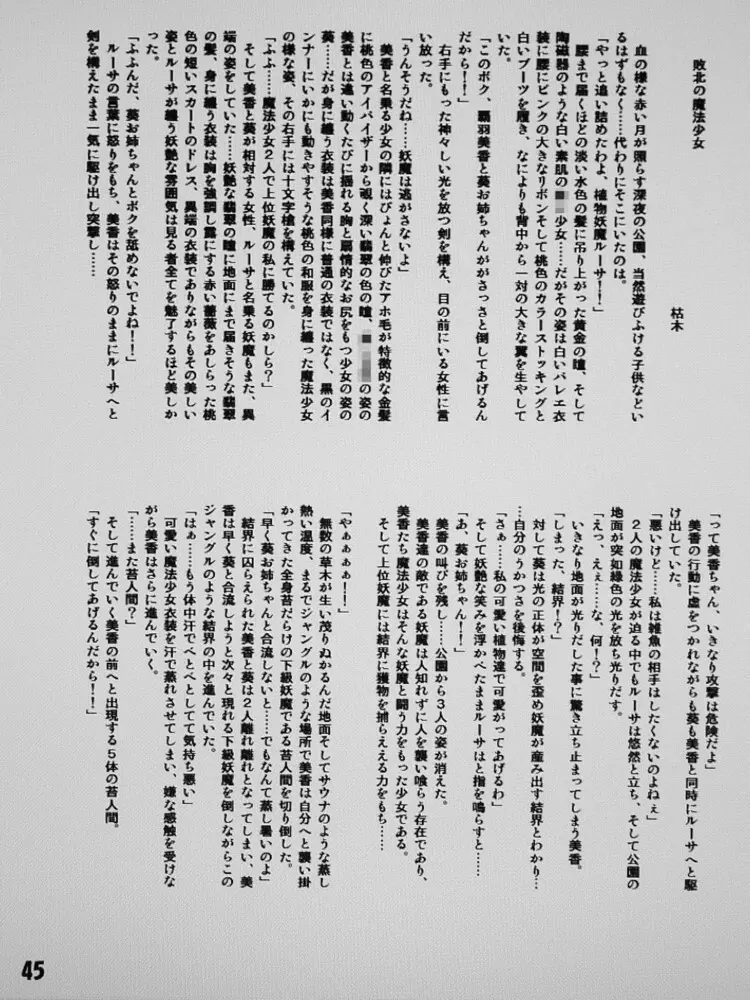 敗北の魔法少女
枯木
血の様な赤い月が照らす深夜の公園、当然遊びふける子供などい
るはずもなく……代わりにそこにいたのは。
「やっと追い詰めたわよ、植物妖魔ルーサ！！」
腰まで届くほどの淡い水色の髪に吊り上がった黄金の瞳、そして
陶磁器のような白い素肌の少女……だがその姿は白いバレエ衣
装に腰にピンクの大きなリボンそして桃色のカラーストッキングと
白いブーツを履き、なによりも背中から一対の大きな翼を生やして
いた。
「このボク、覇羽美香と葵お姉ちゃんががさっさと倒してあげるん
だから！！」
右手にもった神々しい光を放つ剣を構え、目の前にいる女性に言
い放った。
「うんそうだね……妖魔は逃がさないよ」
美香と名乗る少女の隣にはぴょんと伸びたアホ毛が特徴的な金髪
に桃色のアイバイザーから覗く深い翡翠の色の瞳、の姿の
葵……だが身に纏う衣装は美香同様に普通の衣装ではなく、黒のイ
ンナーにいかにも動きやすそうな桃色の和服を身に纏った魔法少女
の様な姿、その右手には十文字槍を構えていた。
「ふふ……魔法少女２人で上位妖魔の私に勝てるのかしら？」
そして美香と葵が相対する女性、ルーサと名乗る妖魔もまた、異
端の姿をしていた……妖艶な翡翠の瞳に地面にまで届きそうな翡翠
の髪、身に纏う衣装は胸を強調し露にする赤い薔薇をあしらった桃
色の短いスカートのドレス、異端の衣装でありながらもその美しい
姿とルーサが纏う妖艶な雰囲気は見る者全てを魅了するほど美しか
った。
「ふふんだ、葵お姉ちゃんとボクを舐めないでよね！！」
ルーサの言葉に怒りをもち、美香はその怒りのままにルーサへと
剣を構えたまま一気に駆け出し突撃し……
「って美香ちゃん、いきなり攻撃は危険だよ」
美香の行動に虚をつかれながらも葵も美香と同時にルーサへと駆
け出していた。
「悪いけど……私は雑魚の相手はしたくないのよねぇ」
２人の魔法少女が迫る中でもルーサは悠然と立ち、そして公園の
地面が突如緑色の光を放ち光りだす。
「えっ、えぇ……な、何！？」
いきなり地面が光りだした事に驚き立ち止まってしまう美香。
「しまった、結界！？」
対して葵は光の正体が空間を歪め妖魔が産み出す結界とわかり…
…自分のうかつさを後悔する。
「さぁ……私の可愛い植物達で可愛がってあげるわ」
そして妖艶な笑みを浮かべたままルーサはと指を鳴らすと……
「あ、葵お姉ちゃん！！」
美香の叫びを残し……公園から３人の姿が消えた。
美香達の敵である妖魔は人知れずに人を襲い喰らう存在であり、
美香たち魔法少女はそんな妖魔と闘う力をもった少女である。
そして上位妖魔には結界に獲物を捕らえる力をもち……
「やぁぁぁぁ！！」
無数の草木が生い茂りぬかるんだ地面そしてサウナのような蒸し
熱い温度、まるでジャングルのような場所で美香は自分へと襲い掛
かってきた全身苔だらけの下級妖魔である苔人間を切り倒した。
「早く葵お姉ちゃんと合流しないと……でもなんて蒸し暑いのよ」
結界に囚らえられた美香と葵は２人離れ離れとなってしまい、美
香は早く葵と合流しようと次々と現れる下級妖魔を倒しながらこの
ジャングルのような結界の中を進んでいた。
「はぁ……もう体中汗でべとべとしてて気持ち悪い」
可愛い魔法少女衣装を汗で蒸れさせてしまい、嫌な感触を受けな
がら美香はさらに進んでいく。
「……また苔人間？」
そして進んでいく美香の前へと出現する５体の苔人間。
「すぐに倒してあげるんだから！！」
45